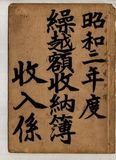 昭和二年度
繰越額収納簿
収入係